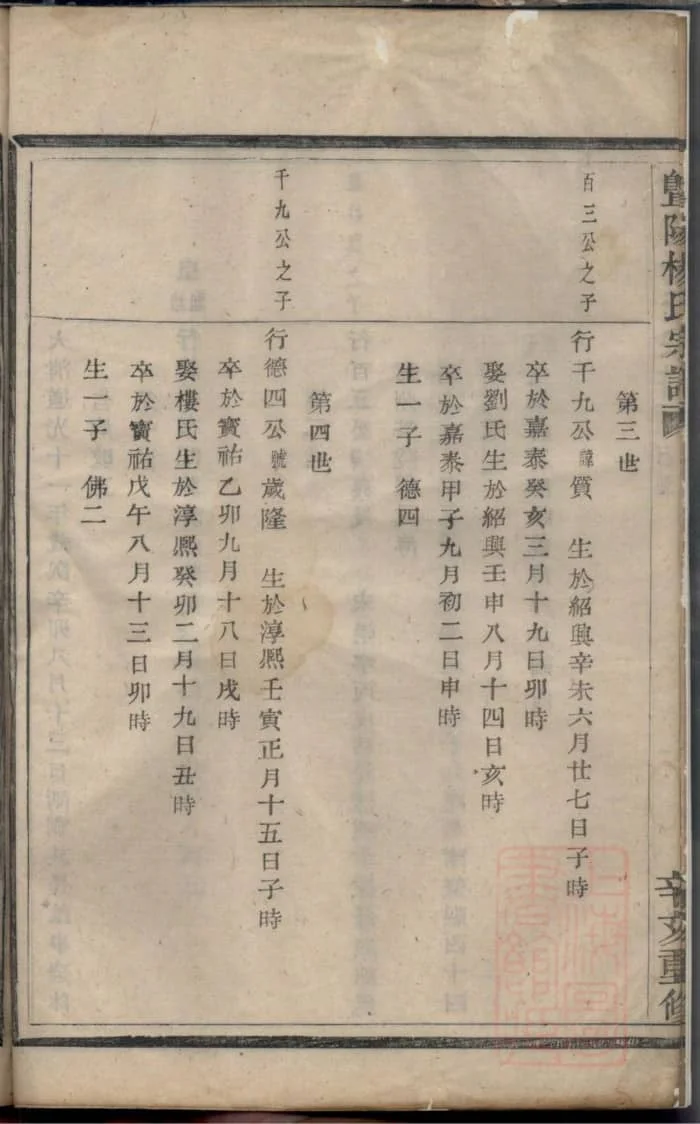 暨陽楊氏宗譜
辛亥重修
第三世
百三公之子
行千九公諱質 生於紹興辛未六月廿七日子時
卒於嘉泰癸亥三月十九日卯時
娶劉氏生於紹興壬申八月十四日亥時
卒於嘉泰甲子九月初二日申時
生一子 德四
第四世
千九公之子
行德四公號歲隆 生於淳熙壬寅正月十五日子時
卒於寳祐乙卯九月十八日戌時
娶樓氏生於淳熙癸卯二月十九日丑時
卒於寳祐戊午八月十三日卯時
生一子 佛二